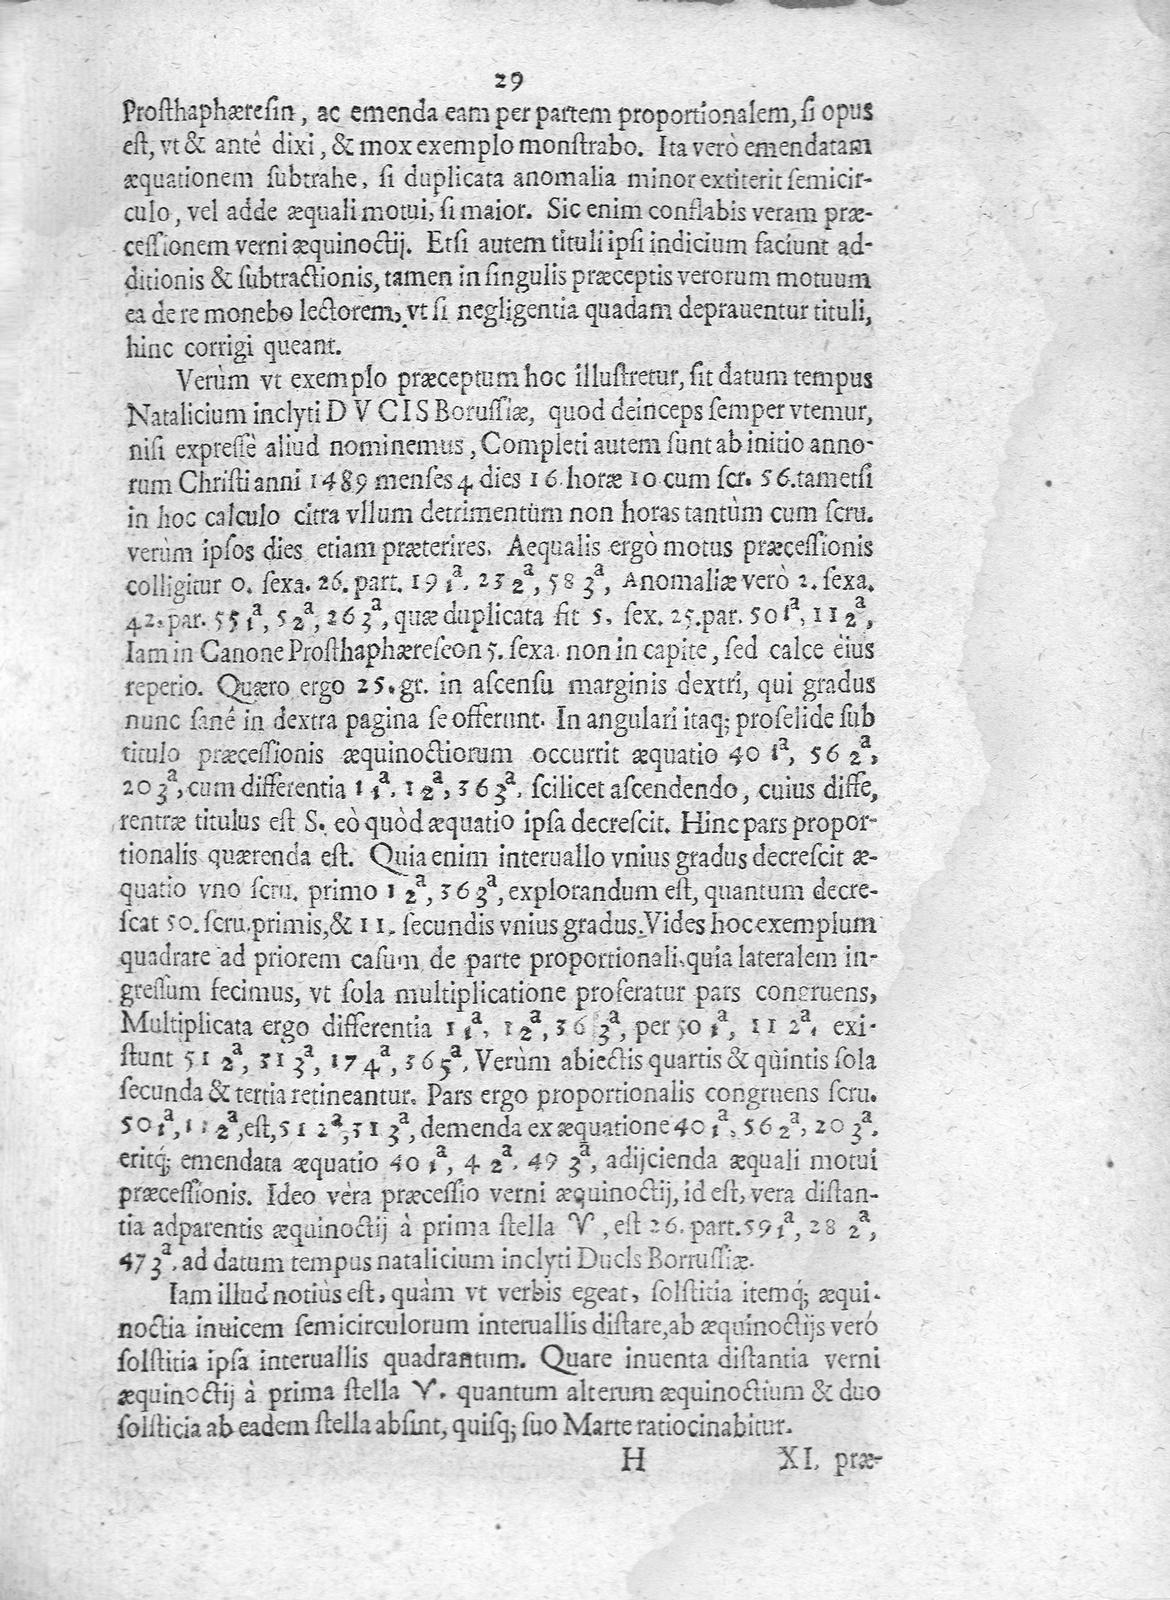 29
Proſthaphæreſin, ac emenda eam per partem proportionalem, ſi opus
eſt, vt & antê dixi, & mox exemplo monſtrabo. Ita verò emendatam
æquationem ſubtrahe, ſi duplicata anomalia minor extiterit ſemicir-
culo, vel adde æquali motui, ſi maior. Sic enim conflabis veram præ-
ceſſionem verni æquinoctij. Etſi autem tituli ipſi indicium faciunt ad-
ditionis & ſubtractionis, tamen in ſingulis præceptis verorum motuum
ea de re monebo lectorem, vt ſi negligentia quadam deprauentur tituli,
hinc corrigi queant.
Verùm vt exemplo præceptum hoc illuſtretur, ſit datum tempus
Natalicium inclyti DVCIS Boruſſiæ, quod deinceps ſemper vtemur,
niſi expreſſè aliud nominemus, Completi autem ſunt ab initio anno-
rum Chriſti anni 1489 menſes 4 dies 16 horæ 10 cum ſcr. 56. tametſi
in hoc calculo citra vllum detrimentùm non horas tantùm cum ſcru.
verùm ipſos dies etiam præterires. Aequalis ergò motus præceſſionis
colligitur 0. ſexa. 26. part. 19 1ª. 23 2ª, 58 3ª, Anomaliæ verò 2. ſexa.
42. par. 55 1ª, 5 2ª, 26 3ª, quæ duplicata fit 5. ſex. 25. par. 50 1ª, 11 2ª,
Iam in Canone Proſthaphæreſeon 5. ſexa. non in capite, ſed calce ëius
reperio. Quæro ergo 25. gr. in aſcenſu marginis dextri, qui gradus
nunc ſanê in dextra pagina ſe offerunt. In angulari itaq; proſelide ſub
titulo præceſſionis æquinoctiorum occurrit æquatio 40 1ª, 56 2ª,
20 3ª, cum differentia 1 1ª. 1 2ª, 36 3ª. ſcilicet aſcendendo, cuius diffe,
rentræ titulus eſt S. eò quòd æquatio ipſa decreſcit. Hinc pars propor-
tionalis quærenda eſt. Quia enim interuallo vnius gradus decreſcit æ-
quatio vno ſcru. primo 1 2ª, 36 3ª, explorandum eſt, quantum decre-
ſcat 50. ſcru. primis, & 11. ſecundis vnius gradus. Vides hoc exemplum
quadrare ad priorem caſum de parte proportionali, quia lateralem in-
greſſum fecimus, vt ſola multiplicatione proferatur pars congruens,
Multiplicata ergo differentia 1 1ª. 1 2ª, 36 3ª, per 50 1ª, 11 2ª. exi-
ſtunt 51 2ª, 31 3ª, 17 4ª, 36 5ª. Verùm abiectis quartis & quintis ſola
ſecunda & tertia retineantur. Pars ergo proportionalis congruens ſcru.
50 1ª, 11 2ª, eſt, 51 2ª, 31 3ª, demenda ex æquatione 40 1ª. 56 2ª, 20 3ª.
eritq; emendata æquatio 40 1ª, 4 2ª. 49 3ª, adijcienda æquali motui
præceſſionis. Ideo vèra præceſſio verni æquinoctij, id eſt, vera diſtan-
tia adparentis æquinoctij à prima ſtella ♈, eſt 26. part. 59 1ª, 28 2ª,
47 3ª. ad datum tempus natalicium inclyti Ducis Borruſſiæ.
Iam illud notiùs eſt, quàm vt verbis egeat, ſolſtitia itemq́; æqui-
noctia inuicem ſemicirculorum interuallis diſtare, ab æquinoctijs veró
ſolſtitia ipſa interuallis quadrantum. Quare inuenta diſtantia verni
æquinoctij à prima ſtella ♈. quantum alterum æquinoctium & duo
ſolſticia ab eadem ſtella abſint, quiſq; ſuo Marte ratiocinabitur.
H XI. præ-